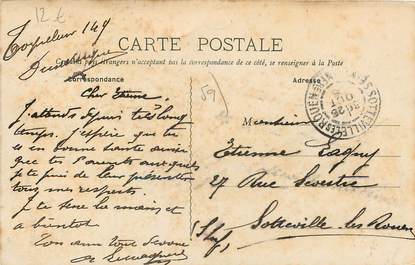 12 €
Torpilleur 149
Dunkerque
CARTE POSTALE
Tous pays étrangers n'acceptant pas la correspondance de ce côté, se renseigner à la Poste
Correspondance
Adresse
Cher Etienne
J'attends depuis très long
temps. J'espère que tu
es en bonne santé ainsi
que tes parents auxquels
je te prie de leur présenter
tous mes respects.
Je te serre la main et
a bientôt
Ton ami tout dévoué
59
SOTTEVILLE-LES-ROUEN
Monsieur
Etienne
27 Rue
Sotteville les Rouen